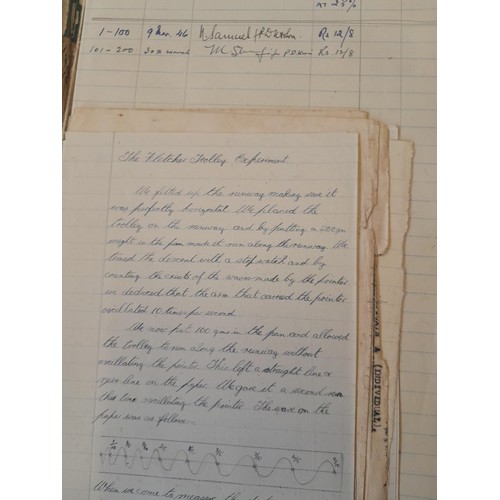 at 25%
1-100 9 Mar. 46 Samuel Rs 12/8
101-200 30th Rs 12/8
The Fletcher Trolley Experiment.
We fitted up the runway making sure it
was perfectly horizontal. We placed the
trolley on the runway and by putting a 200 gm
weight in the pan made it run along the runway. We
timed the descent with a stop watch and by
counting the crests of the waves made by the pointer
we deduced that the arm that carried the pointer
oscillated 10 times per second.
We now put 100 gms in the pan and allowed
the trolley to run along the runway without
oscillating the pointer. This left a straight line or
zero line on the paper. We gave it a second run
this time oscillating the pointer. The wave on the
paper was as follows.
When we come to measure the
& (INDIVIDUAL).